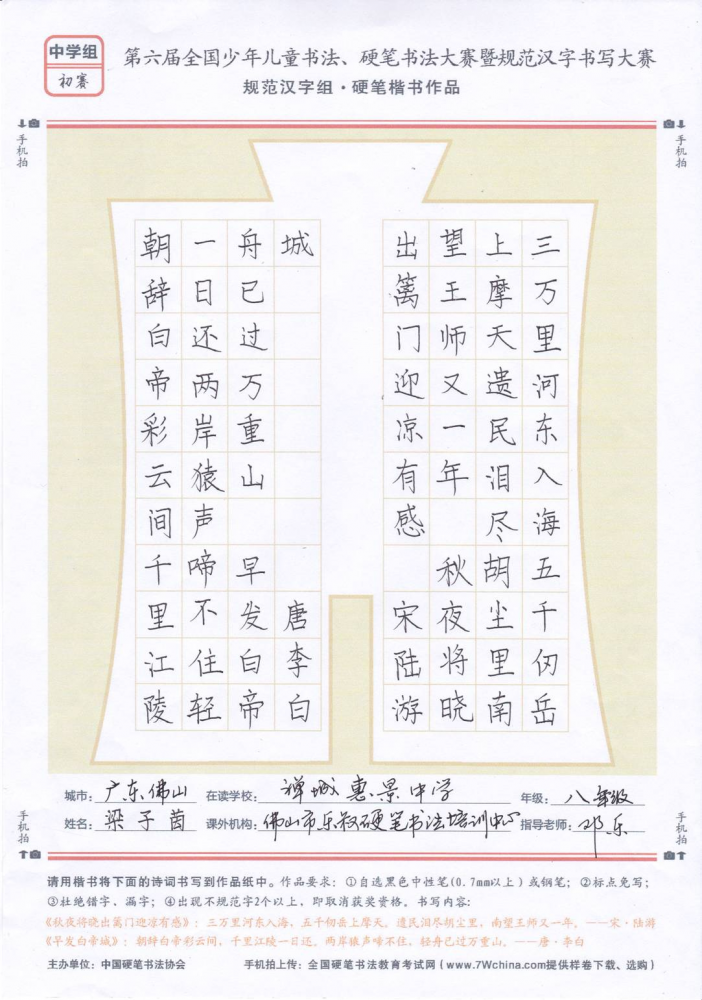 中学组
初赛
第六届全国少年儿童书法、硬笔书法大赛暨规范汉字书写大赛
规范汉字组·硬笔楷书作品
手机拍
手机拍
三万里河东入海五千仞岳
上摩天遗民泪尽胡尘里南
望王师又一年 秋夜将晓
出篱门迎凉有感 宋陆游
朝辞白帝彩云间千里江陵
一日还两岸猿声啼不住轻
舟已过万重山 早发白帝
城 唐李白
城市：广东佛山 在读学校：禅城惠景中学 年级：八年级
姓名：梁子茵 课外机构：佛山市乐叔硬笔书法培训中心 指导老师：邓乐
手机拍
手机拍
请用楷书将下面的诗词书写到作品纸中。作品要求：①自选黑色中性笔(0.7mm以上)或钢笔；②标点免写；
③杜绝错字、漏字；④出现不规范字2个以上，即取消获奖资格。书写内容：
《秋夜将晓出篱门迎凉有感》：三万里河东入海，五千仞岳上摩天。遗民泪尽胡尘里，南望王师又一年。——宋·陆游
《早发白帝城》：朝辞白帝彩云间，千里江陵一日还。两岸猿声啼不住，轻舟已过万重山。——唐·李白
主办单位：中国硬笔书法协会 手机拍上传：全国硬笔书法教育考试网（www.7Wchina.com提供样卷下载、选购）